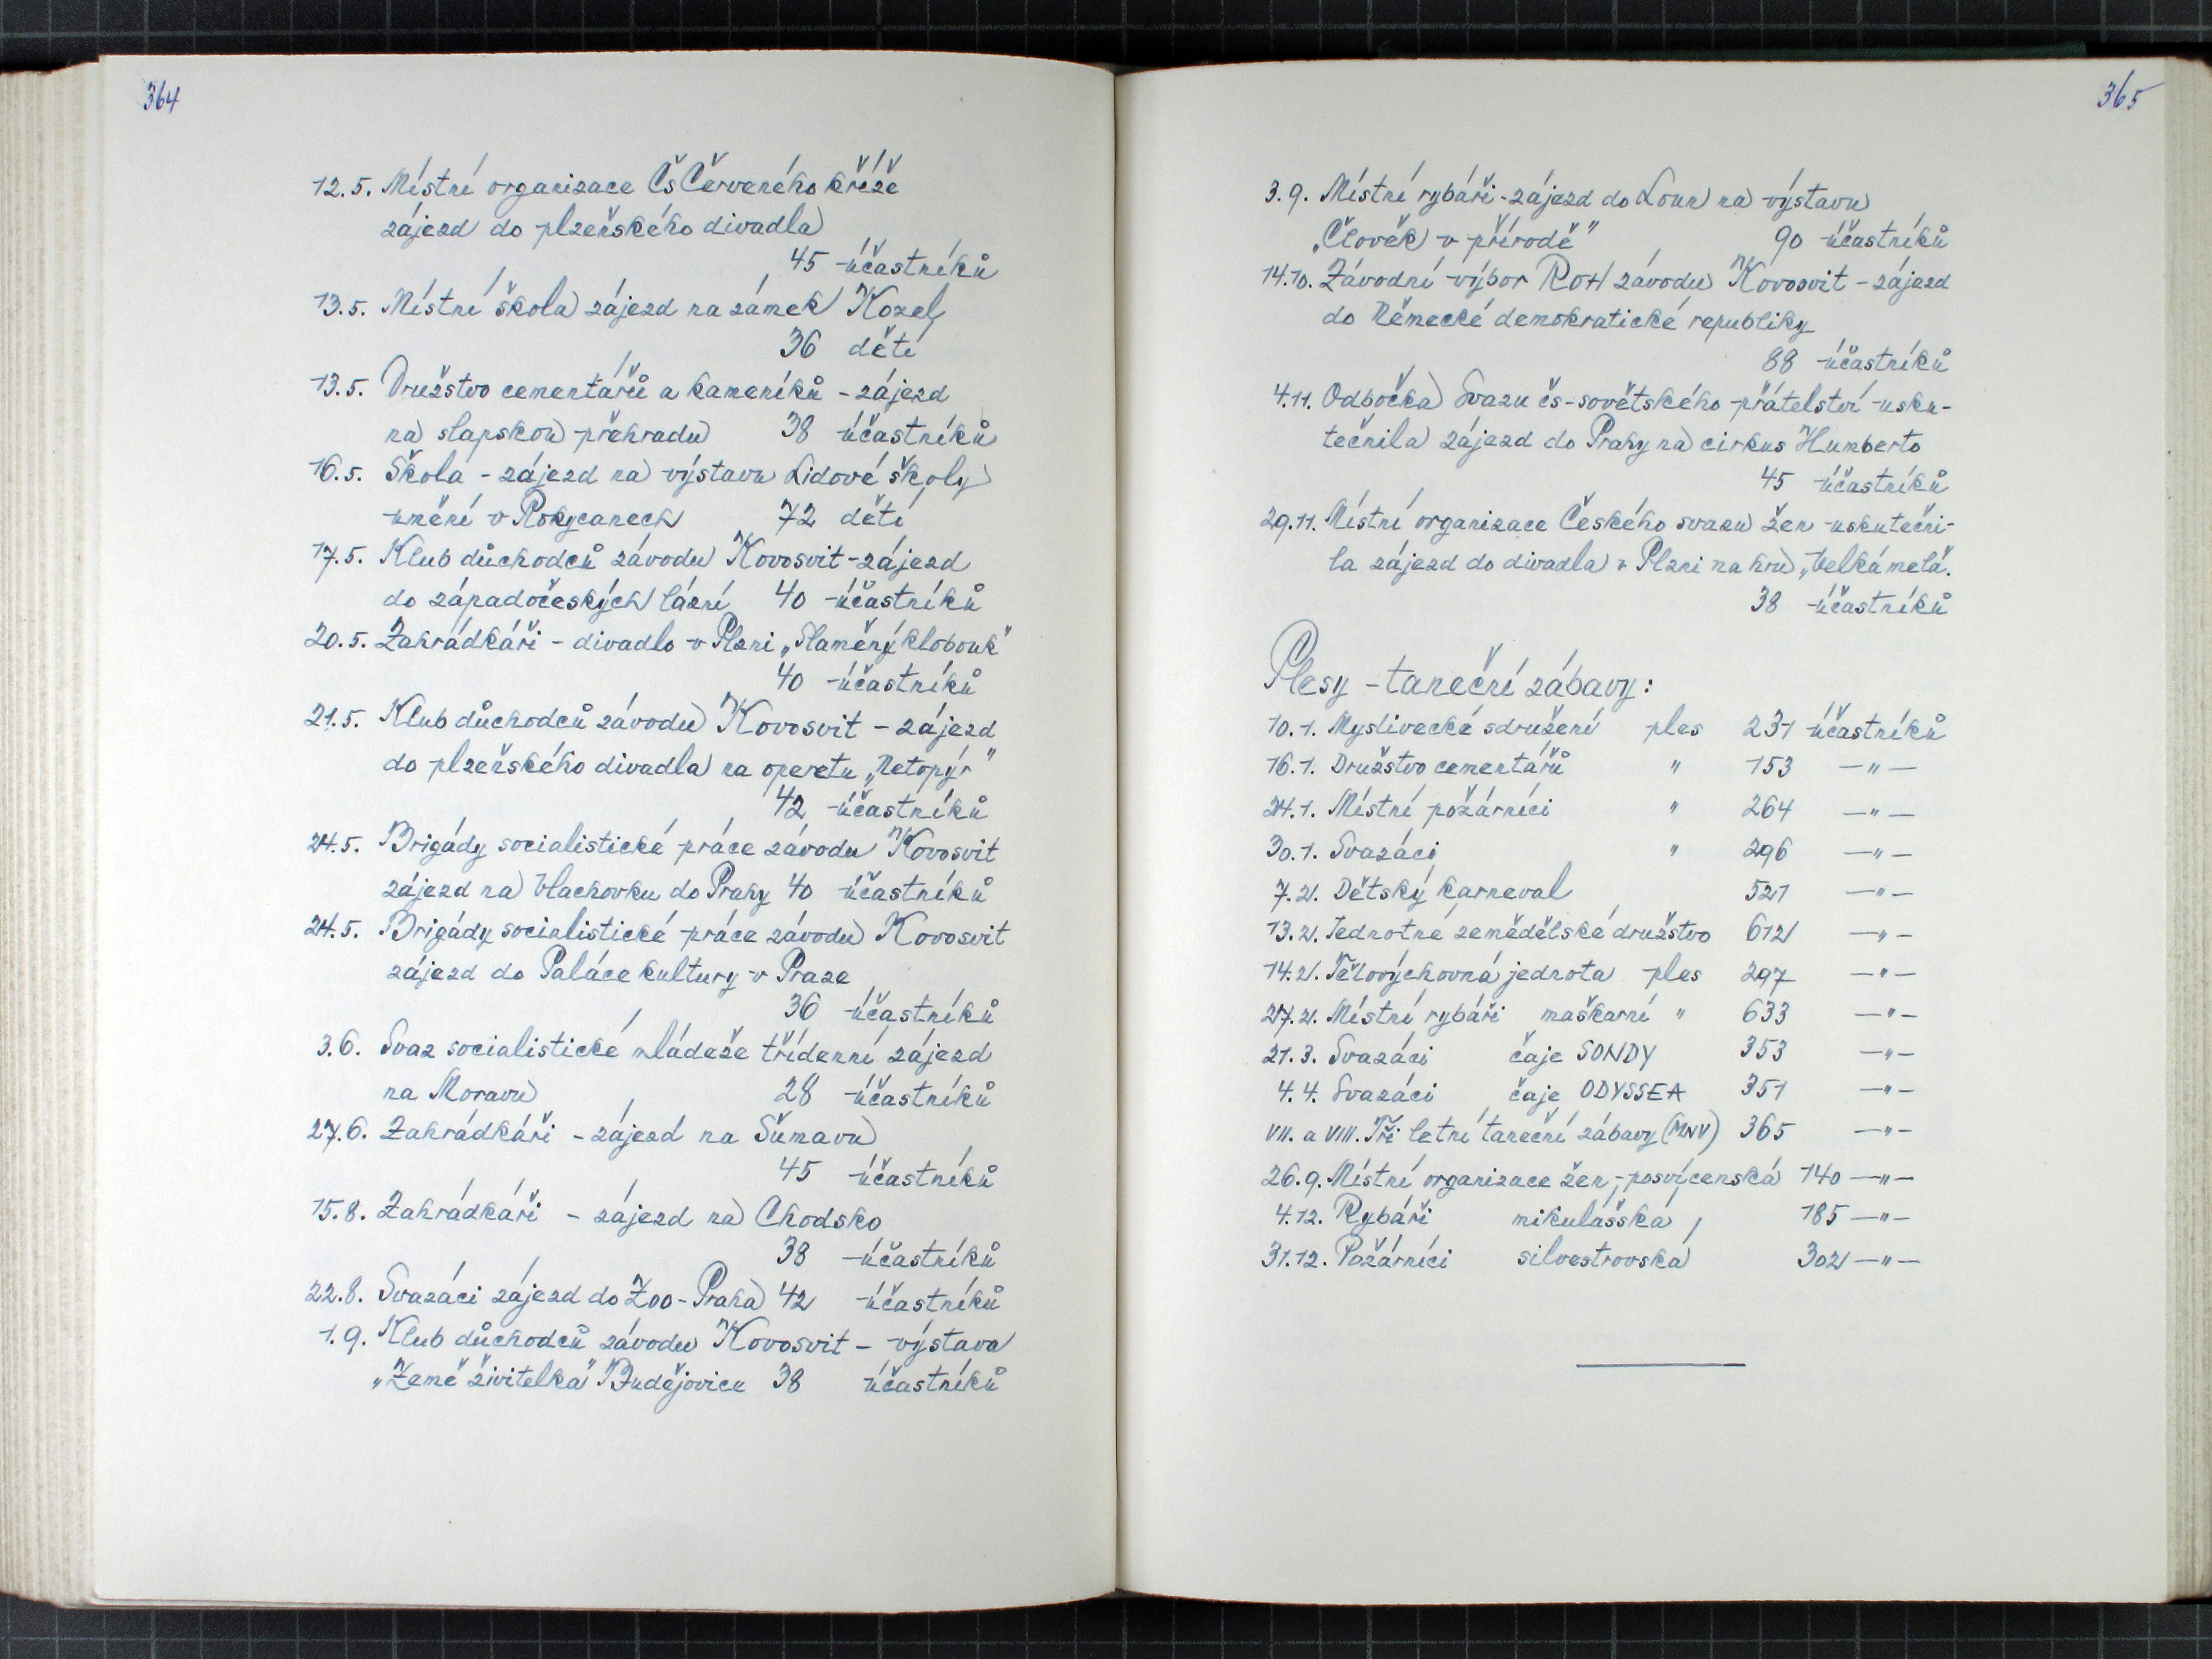 364
12.5. Místní organizace Čs Červeného kříže
zájezd do plzeňského divadla
45 účastníků
13.5. Místní škola zájezd na zámek Kozel
36 dětí
13.5. Družstvo cementářů a kameníků - zájezd
na slapskou přehradu 38 účastníků
16.5. Škola - zájezd na výstavu Lidové školy
umění v Rokycanech 72 dětí
17.5. Klub důchodců závodu Kovosvit - zájezd
do západočeských lázní 40 účastníků
20.5. Zahrádkáři - divadlo v Plzni „Slaměný klobouk"
40 účastníků
21.5. Klub důchodců závodu Kovosvit - zájezd
do plzeňského divadla na operetu „Netopýr"
42 účastníků
24.5. Brigády socialistické práce závodu Kovosvit
zájezd na Vlachovku do Prahy 40 účastníků
24.5. Brigády socialistické práce závodu Kovosvit
zájezd do Paláce kultury v Praze
36 účastníků
3.6. Svaz socialistické mládeže třídenní zájezd
na Moravu 28 účastníků
27.6. Zahrádkáři - zájezd na Šumavu
45 účastníků
15.8. Zahrádkáři - zájezd na Chodsko
38 účastníků
22.8. Svazáci zájezd do Zoo - Praha 42 účastníků
1.9. Klub důchodců závodu Kovosvit - výstava
„Země živitelka" Budějovice 38 účastníků
365
3.9. Místní rybáři - zájezd do Loun na výstavu
„Člověk v přírodě" 90 účastníků
14.10. Závodní výbor ROH závodu Kovosvit - zájezd
do Německé demokratické republiky
88 účastníků
4.11. Odbočka Svazu čs-sovětského přátelství usku-
tečnila zájezd do Prahy na cirkus Humberto
45 účastníků
29.11. Místní organizace Českého svazu žen uskutečni-
la zájezd do divadla v Plzni na hru „Velká meta".
38 účastníků
Plesy - taneční zábavy:
10.1. Myslivecké sdružení ples 231 účastníků
16.1. Družstvo cementářů " 153 —"—
24.1. Místní požárníci " 264 —"—
30.1. Svazáci " 296 —"—
7.2. Dětský karneval 521 —"—
13.2. Jednotné zemědělské družstvo 612 —"—
14.2. Tělovýchovná jednota ples 297 —"—
27.2. Místní rybáři maškarní " 633 —"—
21.3. Svazáci čaje SONDY 353 —"—
4.4. Svazáci čaje ODYSSEA 351 —"—
VII. a VIII. Tři letní taneční zábavy (MNV) 365 —"—
26.9. Místní organizace žen, posvícenská 140 —"—
4.12. Rybáři mikulášská 185 —"—
31.12. Požárníci silvestrovská 302 —"—